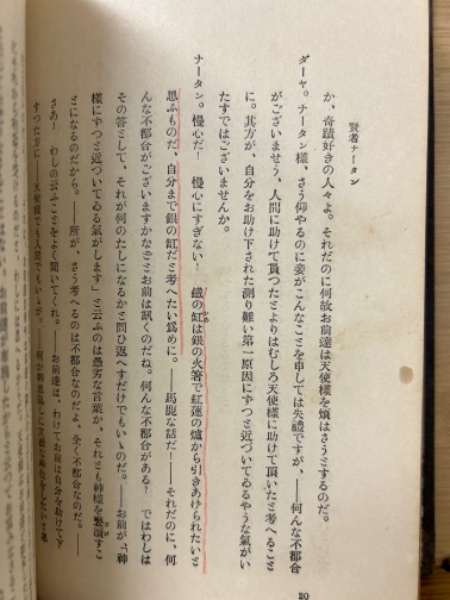 賢者ナータン
か、奇蹟好きの人々よ。それだのに何故お前達は天使樣を煩はさうとするのだ。
ダーヤ。ナータン樣、さう仰やるのに妾がこんなことを申しては失禮ですが、――何んな不都合
がございませう、人間に助けて貰つたとよりはむしろ天使樣に助けて頂いたと考へること
に。其方が、自分をお助け下された測り難い第一原因にずつと近づいてゐるやうな氣がい
たすではございませんか。
ナータン。慢心だ! 慢心にすぎない! 鐵の缸は銀の火箸で紅蓮の爐から引きあげられたいと
思ふものだ、自分まで銀の缸だと考へたい爲めに。――馬鹿な話だ!――それだのに、何
んな不都合がございますかなどとお前は訊くのだね。何んな不都合がある? ではわしは
その答として、それが何のたしになるかと問ひ返へすだけでもいゝのだ。――お前が「神
樣にずつと近づいてゐる氣がします」と云ふのは愚劣な言葉か、それとも神樣を褻瀆すこ
とになるのだから。――所が、さう考へるのは不都合なのだよ、全く不都合なのだ。――
さあ! わしの云ふことをよく聞いてくれ。――お前達は、わけてお前は自分を助けて下
すつた方に――天使樣でも人間でもいゝが。――何か
20